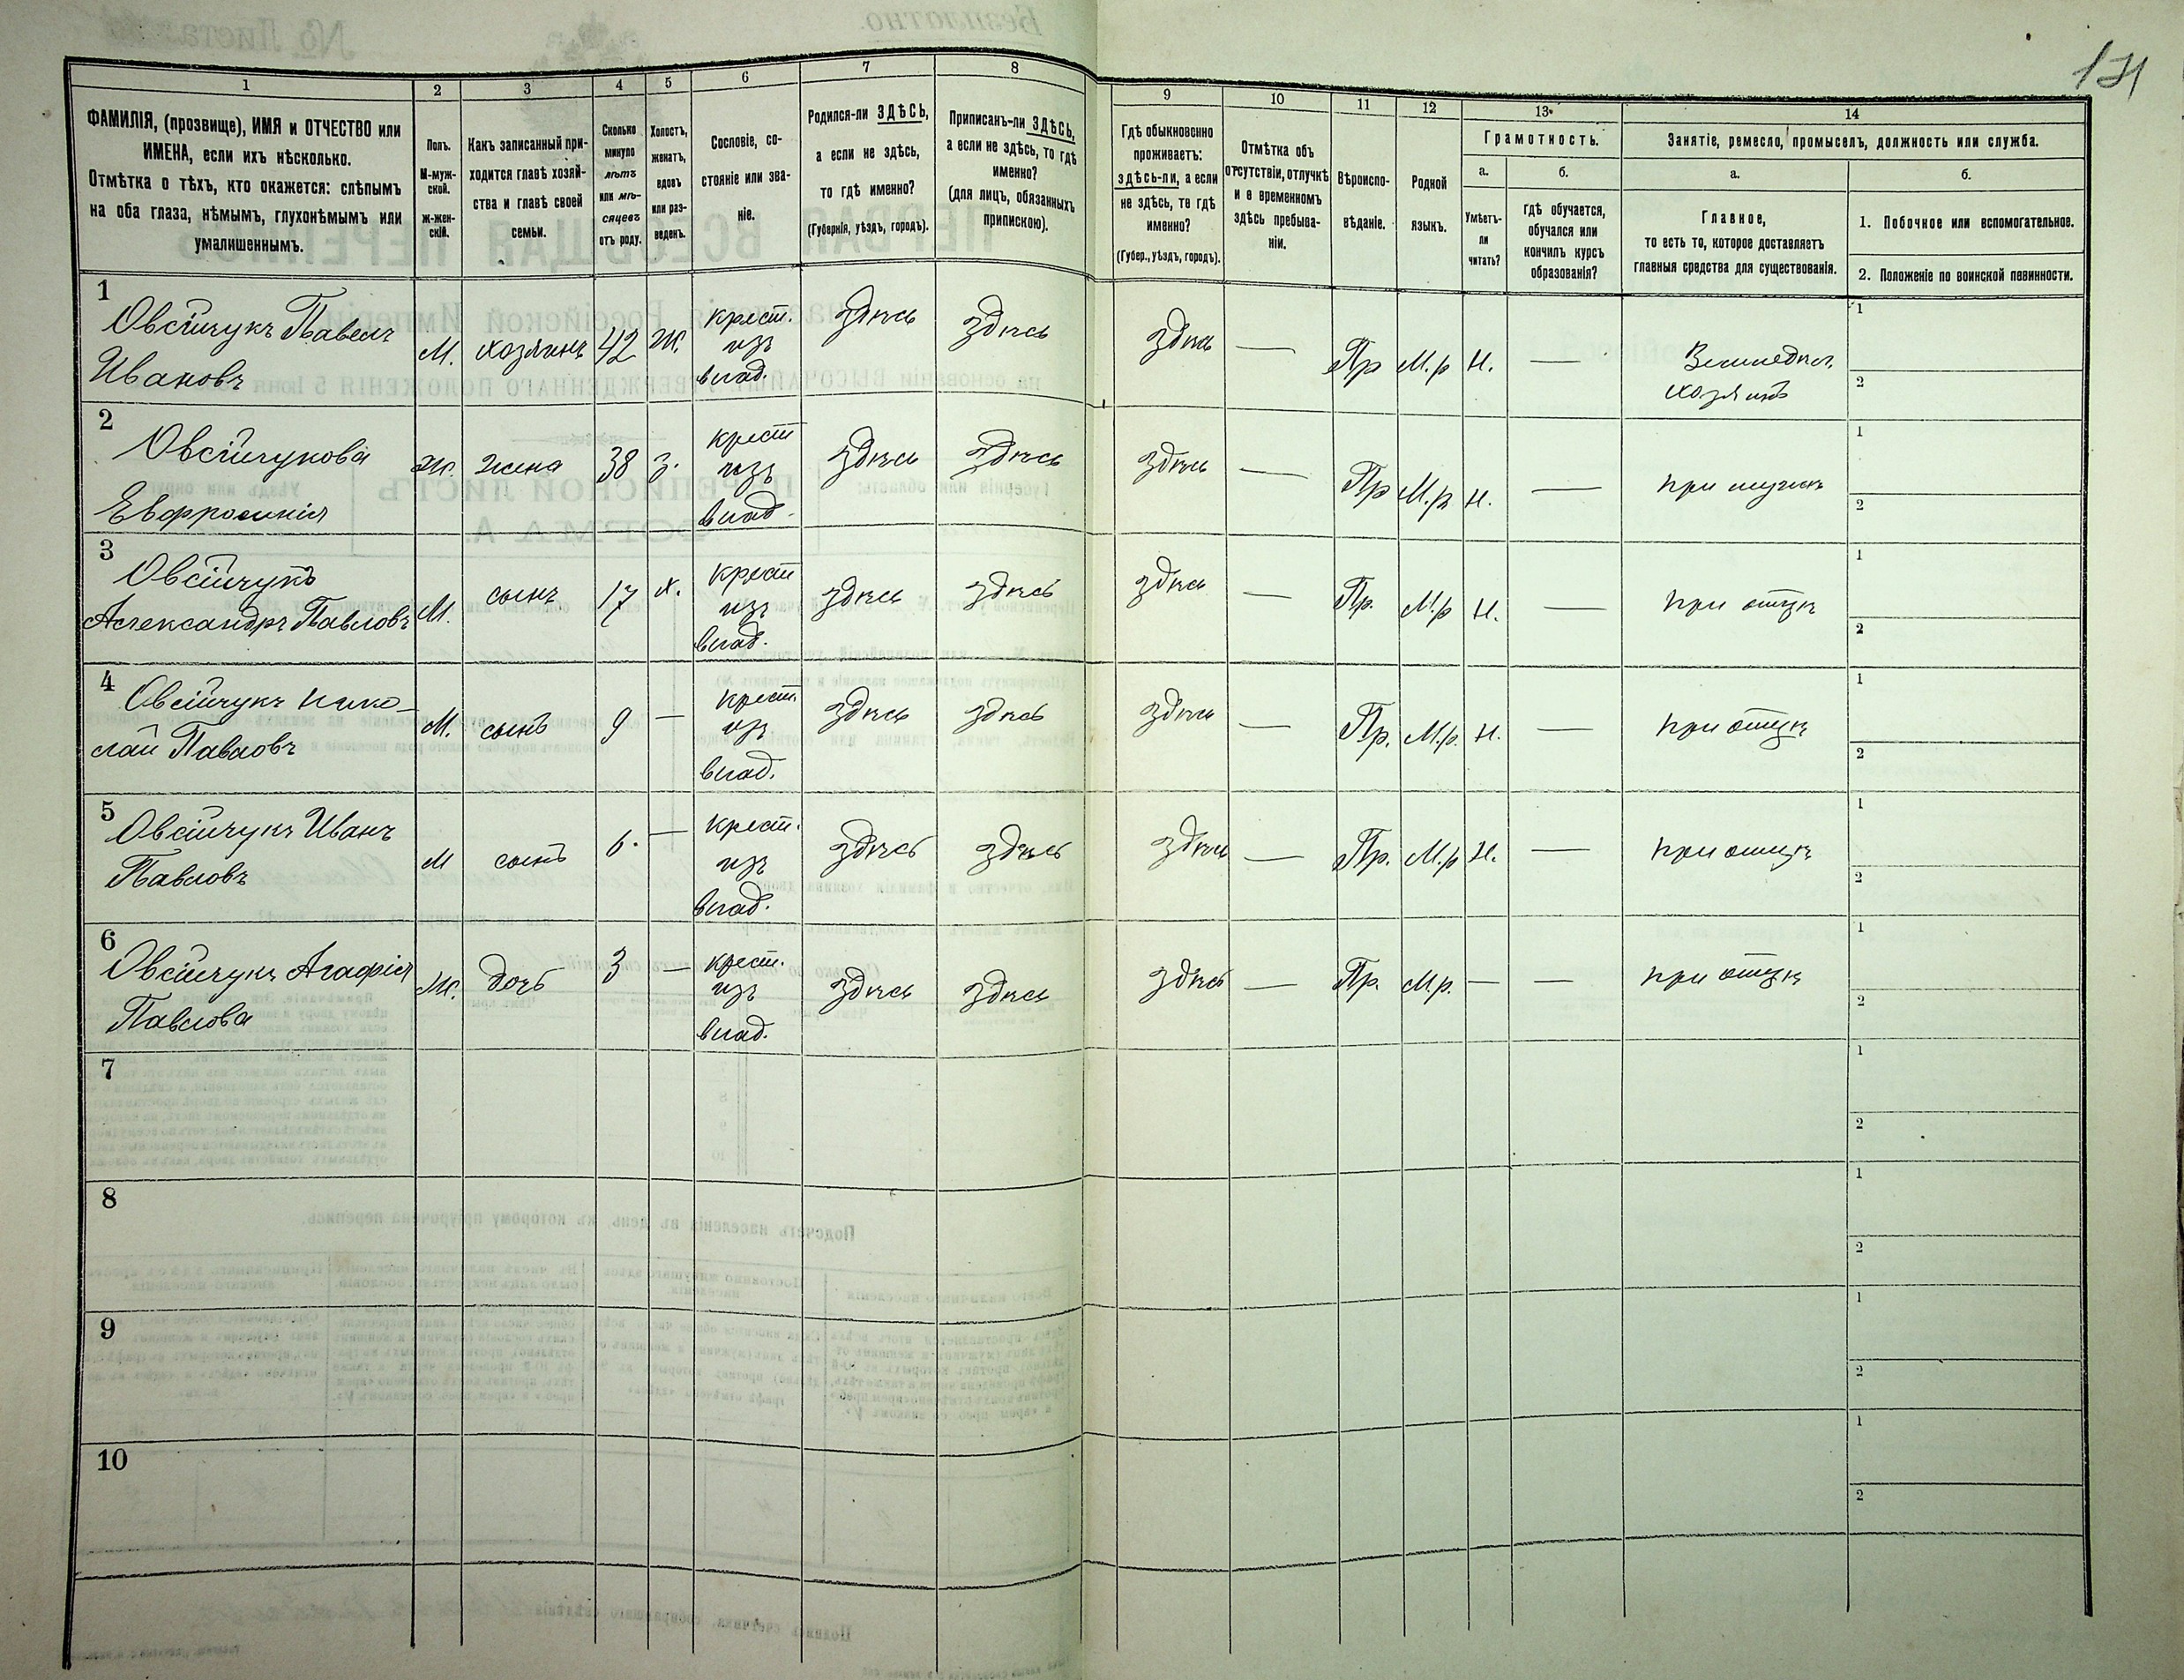 171
1 2 3 4 5 6 7 8 9 10 11 12 13. 14
ФАМИЛІЯ, (прозвище), ИМЯ и ОТЧЕСТВО или
ИМЕНА, если ихъ нѣсколько.
Отмѣтка о тѣхъ, кто окажется: слѣпымъ
на оба глаза, нѣмымъ, глухонѣмымъ или
умалишеннымъ.
Полъ.
М-муж-
ской.
ж-жен-
скій.
Какъ записанный при-
ходится главѣ хозяй-
ства и главѣ своей
семьи.
Сколько
минуло
лѣтъ
или мѣ-
сяцевъ
отъ роду.
Холостъ,
женатъ,
вдовъ
или раз-
веденъ.
Сословіе, со-
стояніе или зва-
ніе.
Родился-ли ЗДѢСЬ,
а если не здѣсь,
то гдѣ именно?
(Губернія, уѣздъ, городъ).
Приписанъ-ли ЗДѢСЬ,
а если не здѣсь, то гдѣ
именно?
(для лицъ, обязанныхъ
припискою).
Гдѣ обыкновенно
проживаетъ:
здѣсь-ли, а если
не здѣсь, то гдѣ
именно?
(Губер., уѣздъ, городъ).
Отмѣтка объ
отсутствіи, отлучкѣ
и о временномъ
здѣсь пребыва-
ніи.
Вѣроиспо-
вѣданіе.
Родной
языкъ.
Грамотность.
а.
Умѣетъ-
ли
читать?
б.
гдѣ обучается,
обучался или
кончилъ курсъ
образованія?
Занятіе, ремесло, промыселъ, должность или служба.
а.
Главное,
то есть то, которое доставляетъ
главныя средства для существованія.
б.
1. Побочное или вспомогательное.
2. Положеніе по воинской повинности.
1
Овсійчукъ Павелъ
Ивановъ
М. хозяинъ 42 Ж.
крест.
изъ
влад.
здѣсь здѣсь здѣсь — Пр М.р Н. —
Земледѣл.
хозяинъ
1
2
2
Овсійчукова
Евфросинія
Ж. жена 38 З.
крест
изъ
влад.
здѣсь здѣсь здѣсь — Пр М.р Н. — при мужѣ
1
2
3
Овсійчукъ
Александръ Павловъ
М. сынъ 17 х.
крест
изъ
влад.
здѣсь здѣсь здѣсь — Пр. М.р Н. — при отцѣ
1
2
4
Овсійчукъ Нико-
лай Павловъ
М. сынъ 9 —
крест.
изъ
влад.
здѣсь здѣсь здѣсь — Пр. М.р. Н. — при отцѣ
1
2
5
Овсійчукъ Иванъ
Павловъ
М сынъ 6. —
крест.
изъ
влад.
здѣсь здѣсь здѣсь — Пр. М.р Н. — при отцѣ
1
2
6
Овсійчукъ Агафія
Павлова
Ж. дочь 3 —
крест.
изъ
влад.
здѣсь здѣсь здѣсь — Пр. М.р. — — при отцѣ
1
2
7
1
2
8
1
2
9
1
2
10
1
2